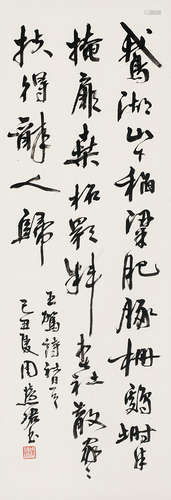 鵞湖山下稻粱肥豚栅鷄塒半
掩扉桑柘影斜春社散家家
扶得醉人歸
王駕詩一首
己丑夏周慧珺書